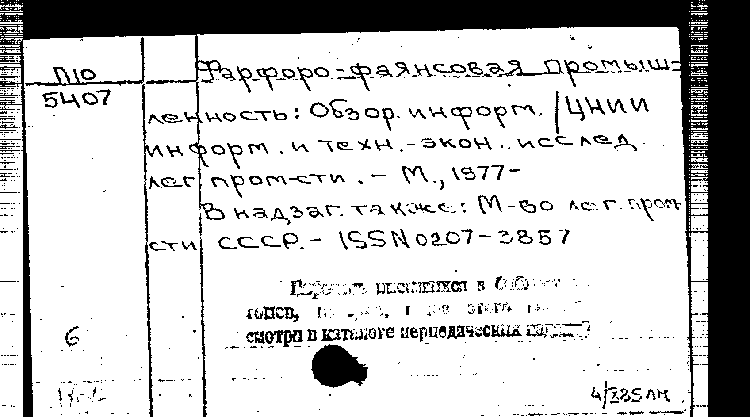 П10
5407
Фарфоро-фаянсовая промыш-
ленность: Обзор. информ. / ЦНИИ
информ. и техн.-экон. исслед.
лег. пром-сти. - М., 1977-
В надзаг. также: М-во лег. пром-
сти СССР. - ISSN 0207-3857
в
смотри в каталоге
6
4/385 лн